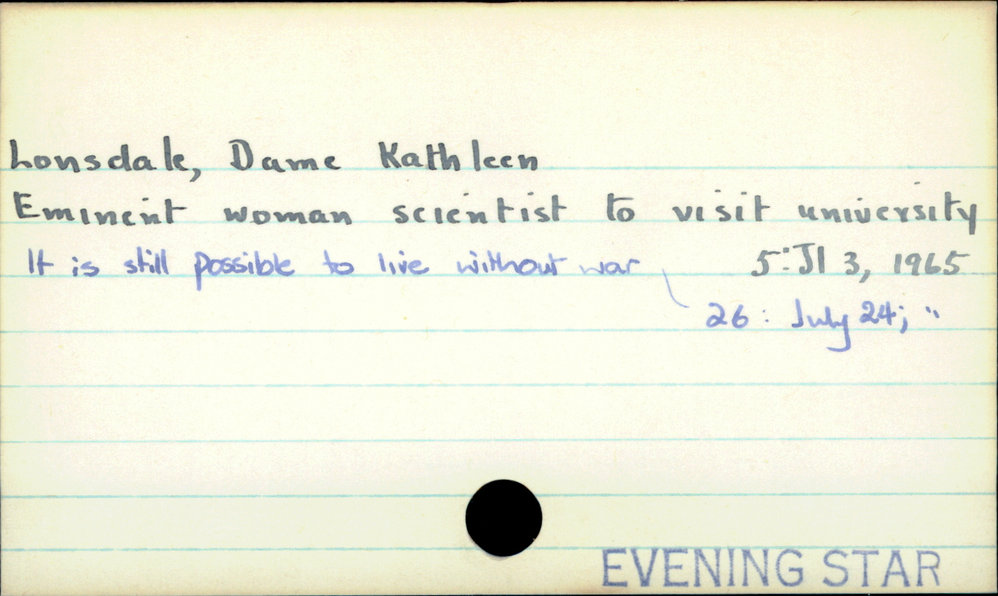 Lonsdale, Dame Kathleen
Eminent woman scientist to visit university
5: Jl 3, 1965
It is still possible to live without war
26: July 24; "
EVENING STAR